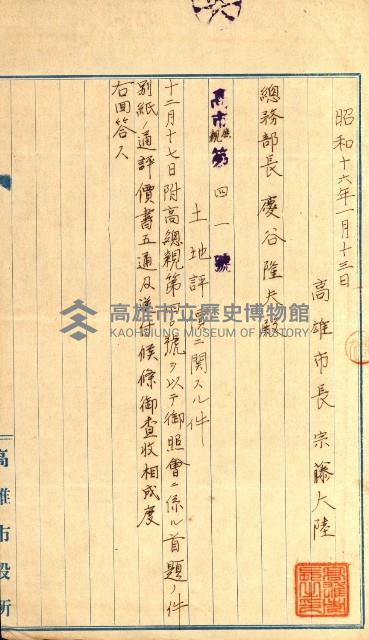 昭和十六年一月十三日
高雄市長 宗藤大陸
總務部長 慶谷隆夫殿
高市親庶第四一號
土地評價ニ関スル件
十二月十七日附高總親第 號ヲ以テ御照會ニ係ル首題ノ件
別紙ノ通評價書五通及送付候條御査收相成度
右回答ス
高雄市役所
高雄市立歷史博物館
KAOHSIUNG MUSEUM OF HISTORY